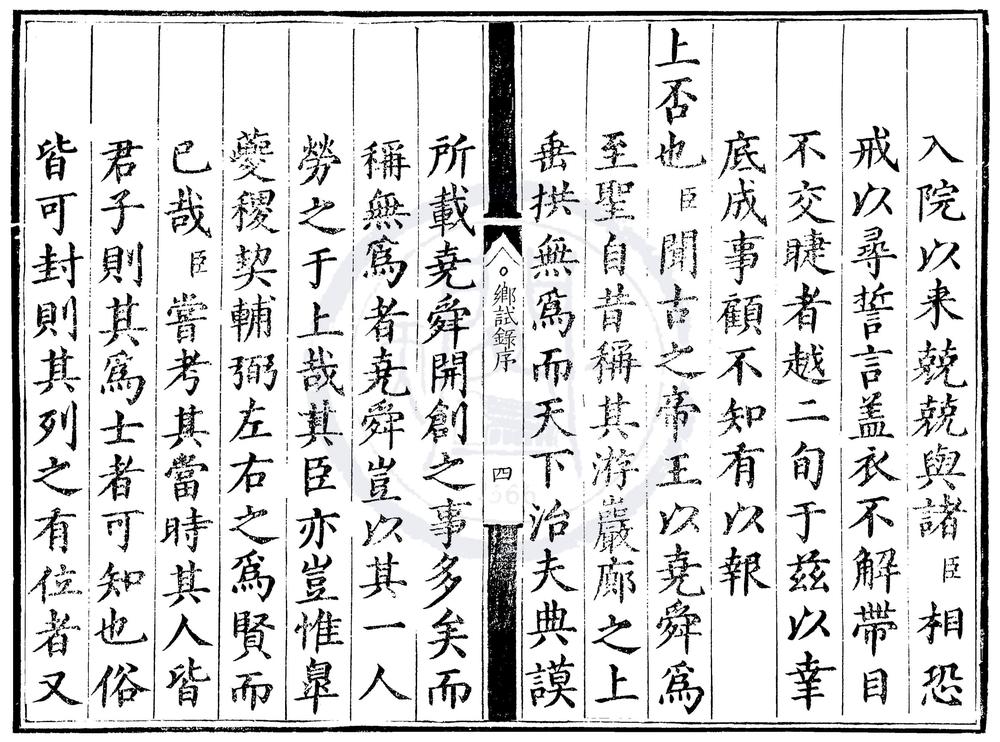 入院以来兢兢與諸臣相恐
戒以尋誓言盖衣不解帶目
不交睫者越二旬于兹以幸
底成事顧不知有以報
上否也臣聞古之帝王以堯舜爲
至聖自昔稱其游巖廊之上
垂拱無爲而天下治夫典謨
鄉試錄序
四
所載堯舜開創之事多矣而
稱無爲者堯舜豈以其一人
勞之于上哉其臣亦豈惟臯
夔稷契輔弼左右之爲賢而
已哉臣嘗考其當時其人皆
君子則其爲士者可知也俗
皆可封則其列之有位者又